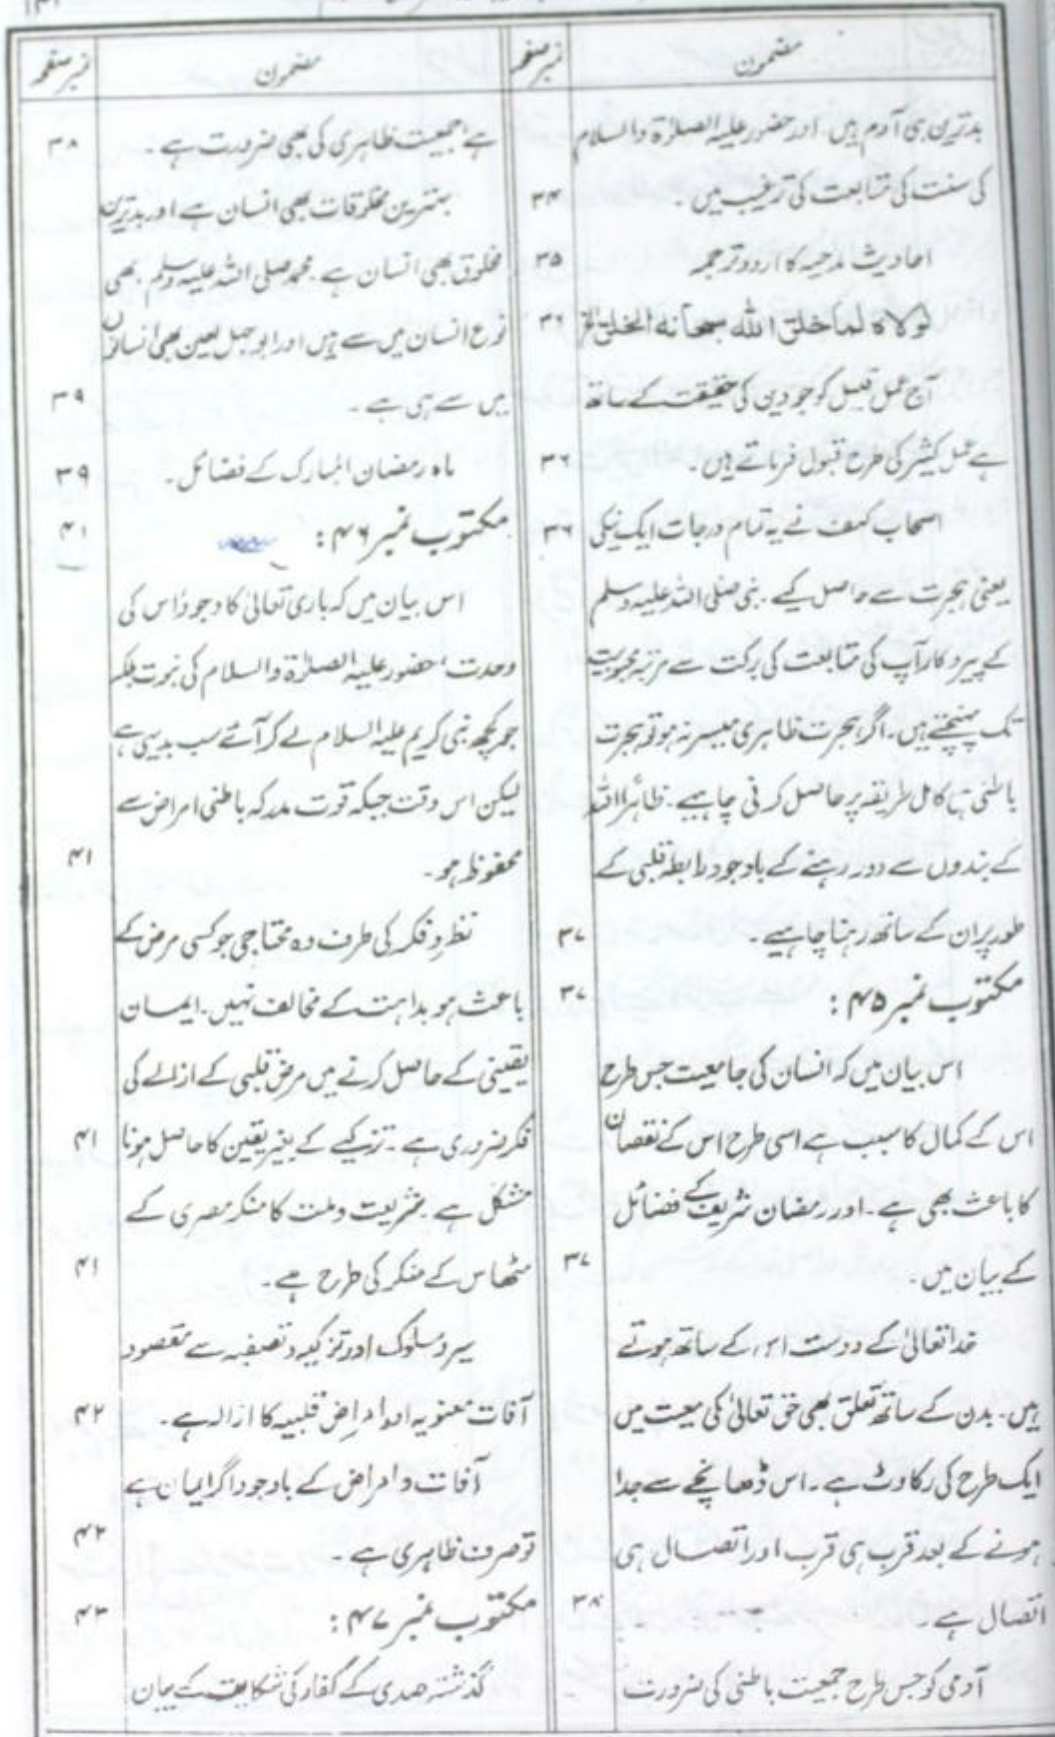 مضمون
نمبر صفحہ
بدترین بنی آدم ہیں اور حضور علیہ الصلوٰۃ والسلام
کی سنت کی متابعت کی ترغیب میں ۔ ۳۴
احادیث مدحیہ کا اردو ترجمہ ۳۵
لولاہ لما خلق اللہ سبحانہ الخلق الخ ۳۶
آج عمل قلیل کو جو دین کی حقیقت کے ساتھ
ہے عمل کثیر کی طرح قبول فرماتے ہیں ۔ ۳۶
اصحاب کہف نے یہ تمام درجات ایک نیکی ۳۶
یعنی ہجرت سے حاصل کیے ۔ نبی صلی اللہ علیہ وسلم
کے پیروکار آپ کی متابعت کی برکت سے مرتبہ محبوبیت
تک پہنچتے ہیں ۔ اگر ہجرت ظاہری میسر نہ ہو تو ہجرت
باطنی کامل طریقہ پر حاصل کرنی چاہیے ۔ ظاہراً اللہ
کے بندوں سے دور رہنے کے باوجود رابطہ قلبی کے
طور پر ان کے ساتھ رہنا چاہیے ۔ ۳۷
مکتوب نمبر ۴۵ : ۳۷
اس بیان میں کہ انسان کی جامعیت جس طرح
اس کے کمال کا سبب ہے اسی طرح اس کے نقصان
کا باعث بھی ہے ۔ اور رمضان شریف کے فضائل
کے بیان میں ۔ ۳۷
خدا تعالیٰ کے دوست اس کے ساتھ ہوتے
ہیں ۔ بدن کے ساتھ تعلق بھی حق تعالیٰ کی معیت میں
ایک طرح کی رکاوٹ ہے ۔ اس ڈھانچے سے جدا
ہونے کے بعد قرب ہی قرب اور اتصال ہی
اتصال ہے ۔ ۳۸
آدمی کو جس طرح جمعیت باطنی کی ضرورت
مضمون
نمبر صفحہ
ہے جمعیت ظاہری کی بھی ضرورت ہے ۔ ۳۸
بہترین مخلوقات بھی انسان ہے اور بدترین
مخلوق بھی انسان ہے ۔ محمد صلی اللہ علیہ وسلم بھی
نوع انسان میں سے ہیں اور ابوجہل لعین بھی انسانوں
میں سے ہی ہے ۔ ۳۹
ماہ رمضان المبارک کے فضائل ۔ ۳۹
مکتوب نمبر ۴۶ : ۴۱
اس بیان میں کہ باری تعالیٰ کا وجود اس کی
وحدت ، حضور علیہ الصلوٰۃ والسلام کی نبوت بلکہ
جو کچھ نبی کریم علیہ السلام لے کر آئے سب بدیہی ہے
لیکن اس وقت جبکہ قوت مدرکہ باطنی امراض سے
محفوظ ہو ۔ ۴۱
نظر و فکر کی طرف وہ محتاجی جو کسی مرض کے
باعث ہو بداہت کے مخالف نہیں ۔ ایمان
یقینی کے حاصل کرنے میں مرض قلبی کے ازالے کی
فکر ضروری ہے ۔ تزکیے کے بغیر یقین کا حاصل ہونا ۴۱
مشکل ہے ۔ شریعت و ملت کا منکر مصری کے
مٹھاس کے منکر کی طرح ہے ۔ ۴۱
سیر و سلوک اور تزکیہ و تصفیہ سے مقصود
آفات معنویہ اور امراض قلبیہ کا ازالہ ہے ۔ ۴۲
آفات و امراض کے باوجود اگر ایمان ہے
تو صرف ظاہری ہے ۔ ۴۲
مکتوب نمبر ۴۷ : ۴۳
گذشتہ صدی کے کفار کی شکایت کے بیان